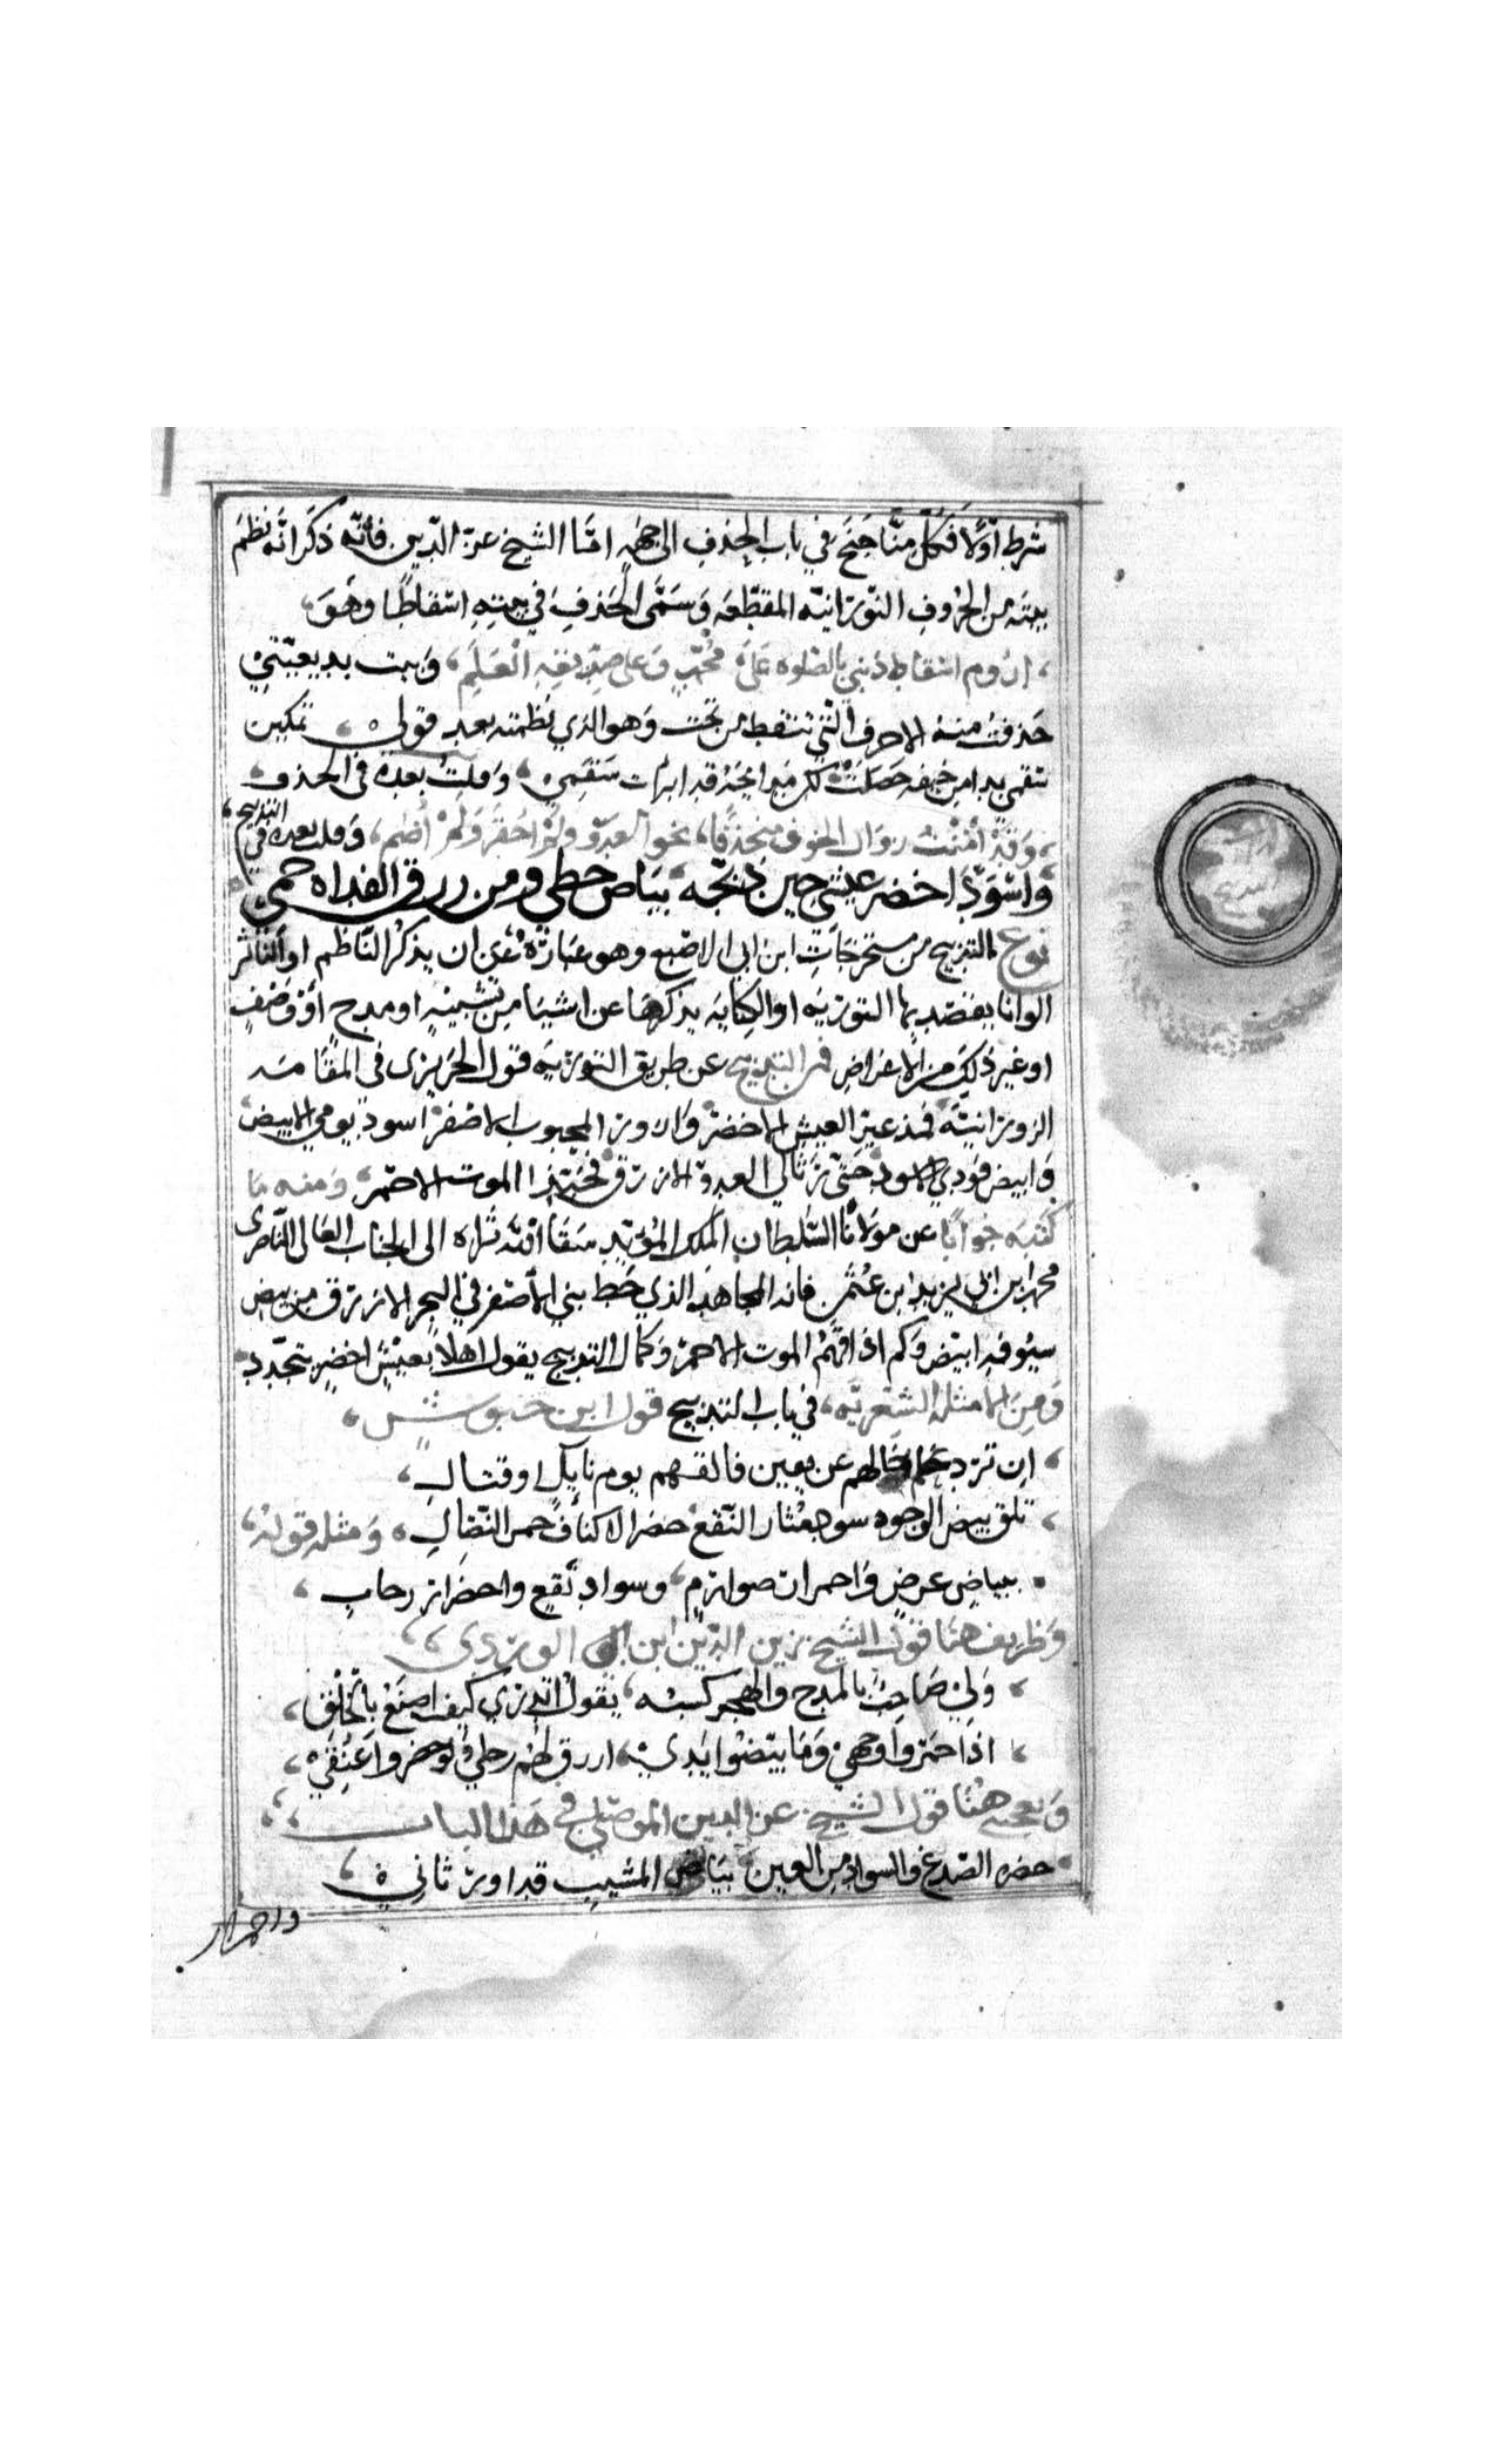 شرط اوّلًا فكلّ منّا جَنَحَ في باب الحذف الى جهه امّا الشيخ عزّ الدّين فانّه ذكَر انّه نظمَ
بيته من الحُروفِ النّورانيّه المقطّعه وَسمَّى الحَذفَ في بيتِهِ اسْقاطًا وهوَ
، اروم اسْقاط ذنبي بالصّلوه عَلَى محُمّدٍ وعلى صِدّيقِهِ العَلَمِ، وَبيت بديعيّتيْ
حَذفتُ منهُ الاحرف الّتي تنقط من تحْت وَهوَ الذي نظمته بعد قولي تمكين
سقمي بدا من خيفه حَصَلَتْ لكن مدايحَهُ قد ابرات سَقَمِي، وَقلتُ بعده في الحذف،
، وَقدْ أمِنْتُ زوَال الخوف منحذفًا، نحو العدوّ ولمْ احقَر وَلمْ أضَم، وَقلت بعده في التدبيج،
وَاسْوَدَّ اخضر عيْشي حِين دَبّجَه، بيَاض حظي ومن زرق العداه حمي
نوع التدبيج من مستخرجَاتِ ابن ابي الاصْبع وهو عبَارَةٌ عَن ان يذكرَ النّاظم او النّاثر
الوانًا يقصد بها التوريَه او الكِنَايَه بذكرهَا عن اشيَا من تشبيبٍ او مدح أوْ وَصْفٍ
او غير ذلِكَ من الاغراضِ فمن التدبيج عن طريق التوريَه قول الحَريري في المقامَه
الزورَانيّه فمذ غبر العيش الاخضر وَازورّ المحبوب الاصْفر اسود يومي الابيض
وَابيض فودي الاسود حَتّى رَثا لي العدوّ الازرق فحَبّذا الموت الاحمَر، وَمنه مَا
كتبَه جَوابًا عن مولانا السّلطان الملك المؤيّد سَقا اللّه ثراه الى الجناب العَالى النّاصرى
محمد ابن ابي يزيد ابن عُثمٰن فانه المجاهد الذي خط بني الاصْفر في البحر الازرق من بيض
سيوفه ابيَض وَكم اذاقهُمُ الموت الاحمَر وَكمال التدبيج يقول اهْلًا بعيْشٍ اخضرٍ يتجدّد
وَمن الامثلة الشّعْريّه، في باب التدبيج قول ابن حَيّوس شعر،
، ان ترد علم حالهم عن يقين فالقهم يوم نايل او قتال،
، تلق بيض الوجوه سود مثار النّقع خضر الاكناف حمر النّضالِ، وَمثله قولهُ،
• ببياض عرضٍ وَاحمرار صوارمٍ، وسواد نقعٍ واخضرار رحابِ،
وَظريف هنا قول الشيخ زين الدّين ابن الوردي،،
، وَلي صَاحبٌ بالمدح والهجر كسبُه، يقول اتدري كيف اصنَعُ بالخلق،
، اذَا حَمّروا وَجهي وَمَا بيّضوا يَدي، ازرق لهُم رجلي وَلو خضروا عنقي،
وَيعجبني هُنَا قول الشيخ عز الدين الموصلي في هَذا البَاب،،
• خضره الصّدغ والسواد من العين، بيَاض المشيب قد اورثاني،
واحمرار